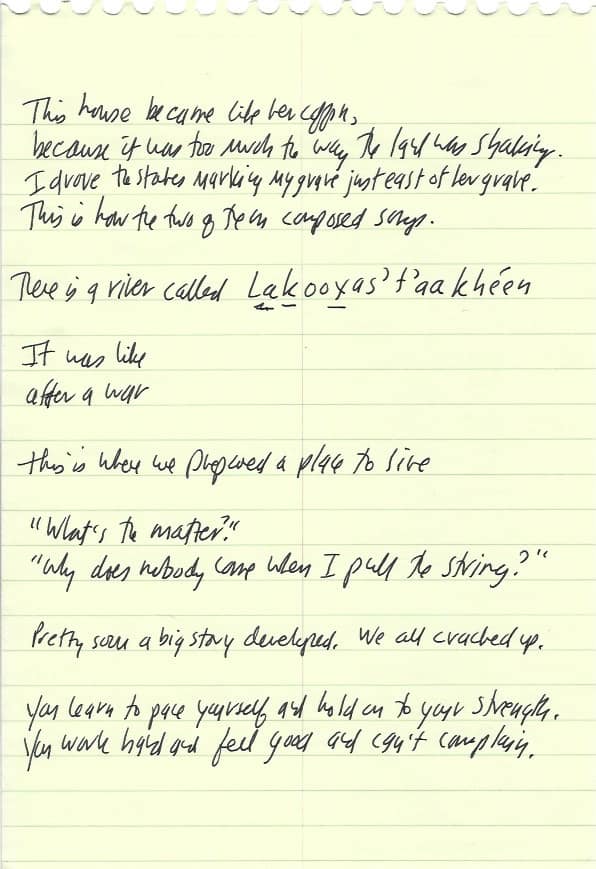 This house became like her coffin,
because it was too much the way the land was shaking.
I drove the stakes marking my grave just east of her grave.
This is how the two of them composed songs.
There is a river called L̲ak̲oox̲as't'aakhéen
It was like
after a war
this is where we prepared a place to live
"What's the matter?"
"Why does nobody come when I pull the string?"
Pretty soon a big story developed. We all cracked up.
You learn to pace yourself and hold on to your strength.
You work hard and feel good and can't complain.